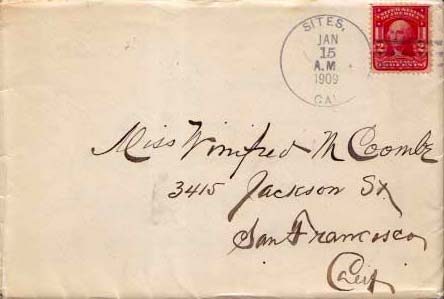 SITES,
JAN
15
A.M
1909
CAL
Miss Winifred M Coombe
3415 Jackson St.
San Francisco
Calif